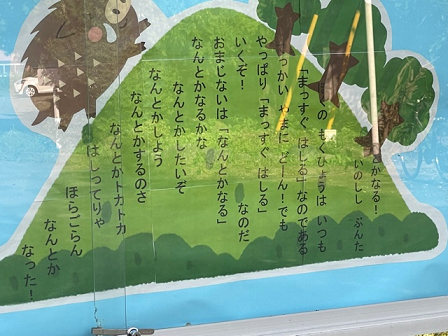 とかなる！
いのしし ぶんた
くの もくひょうは いつも
「まっすぐ はしる」なのである
っかい やまに どーん！でも
やっぱり「まっすぐ はしる」
なのだ
いくぞ！
おまじないは「なんとかなる」
なんとかなるかな
なんとかしたいぞ
なんとかしよう
なんとかするのさ
なんとかトカトカ
はしってりゃ
ほらごらん
なんとか
なった！